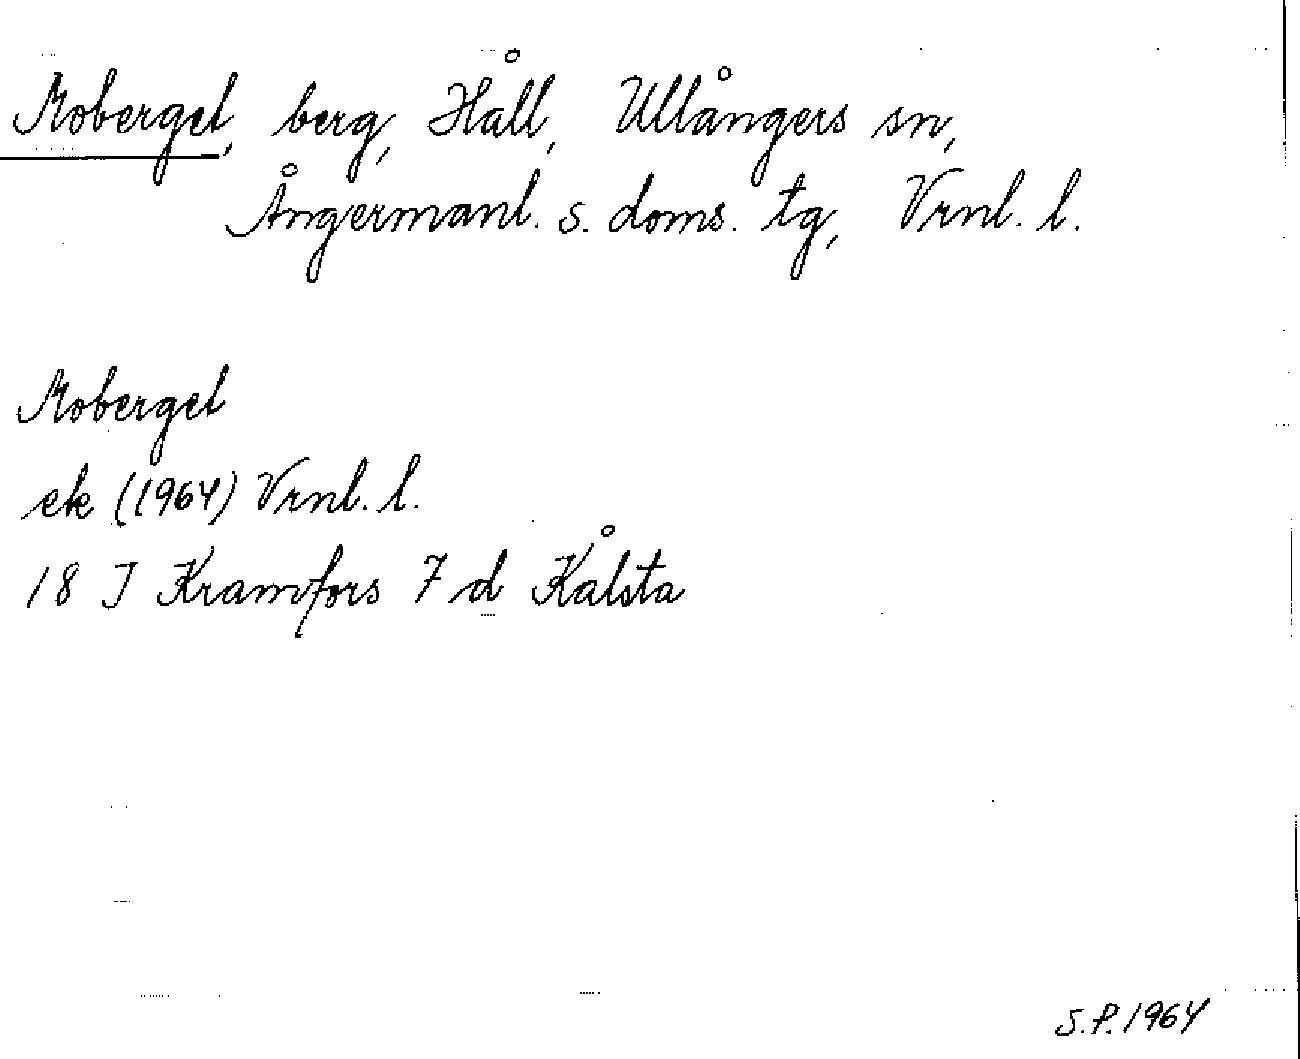 Moberget, berg, Håll, Ullångers sn,
Ångermanl. s. doms. tg, Vrnl. l.
Moberget
ek (1964) Vrnl. l.
18 J Kramfors 7 d Kålsta
S.P. 1964